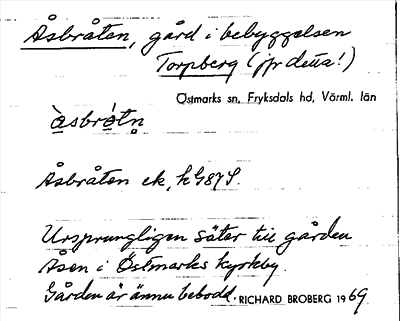 Åsbråten, gård i bebyggelsen
Torpberg (jfr detta!)
Östmarks sn, Fryksdals hd, Värml. län
Åsbråten ek, hG87S.
Ursprungligen säter till gården
Åsen i Östmarks kyrkby.
Gården är ännu bebodd. RICHARD BROBERG 1969